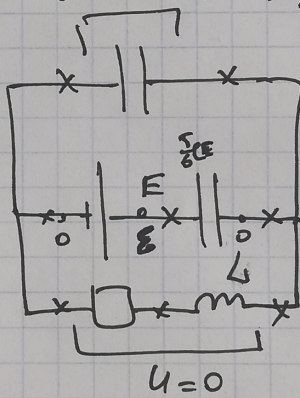 5/6 CE
E
0
ℰ
0
L
U=0